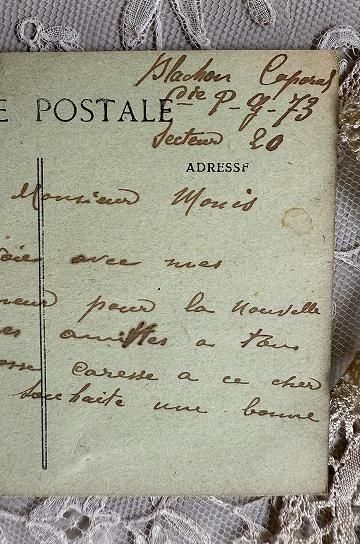 Blachon Caporal
Cie P-G-73
E POSTALE
Secteur 20
ADRESSE
Monsieur Monis
avec mes
pour la nouvelle
es amitiés a tous
caresse a ce cher
souhaite une bonne